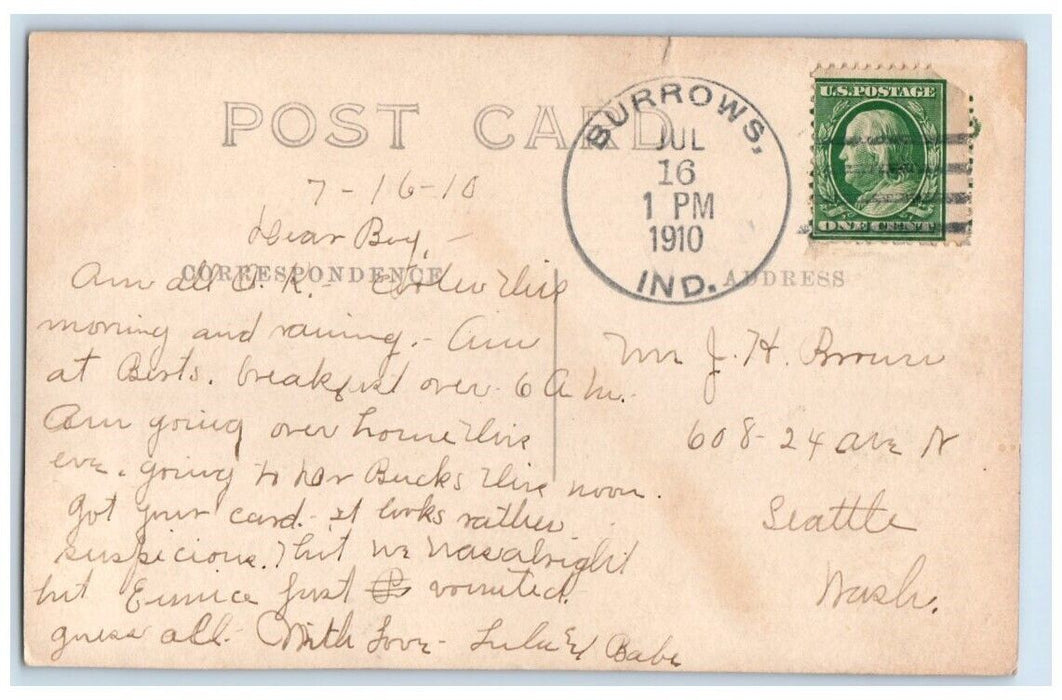 POST CARD
BURROWS,
JUL
16
1 PM
1910
IND.
U.S. POSTAGE
ONE CENT
7-16-10
Dear Boy,-
CORRESPONDENCE
ADDRESS
Am all O.K.- this
morning and raining.- Am
at Berts. breakfast over- 6 A.M.-
Am going over home this
eve. going to Bucks this noon.
Got your card.- it looks rather
suspicious. that we was alright
but Eunice just vomited.
guess all- With Love- Lulu & Babe
Mr J. H. Brown
608-24 ave N
Seattle
Wash.